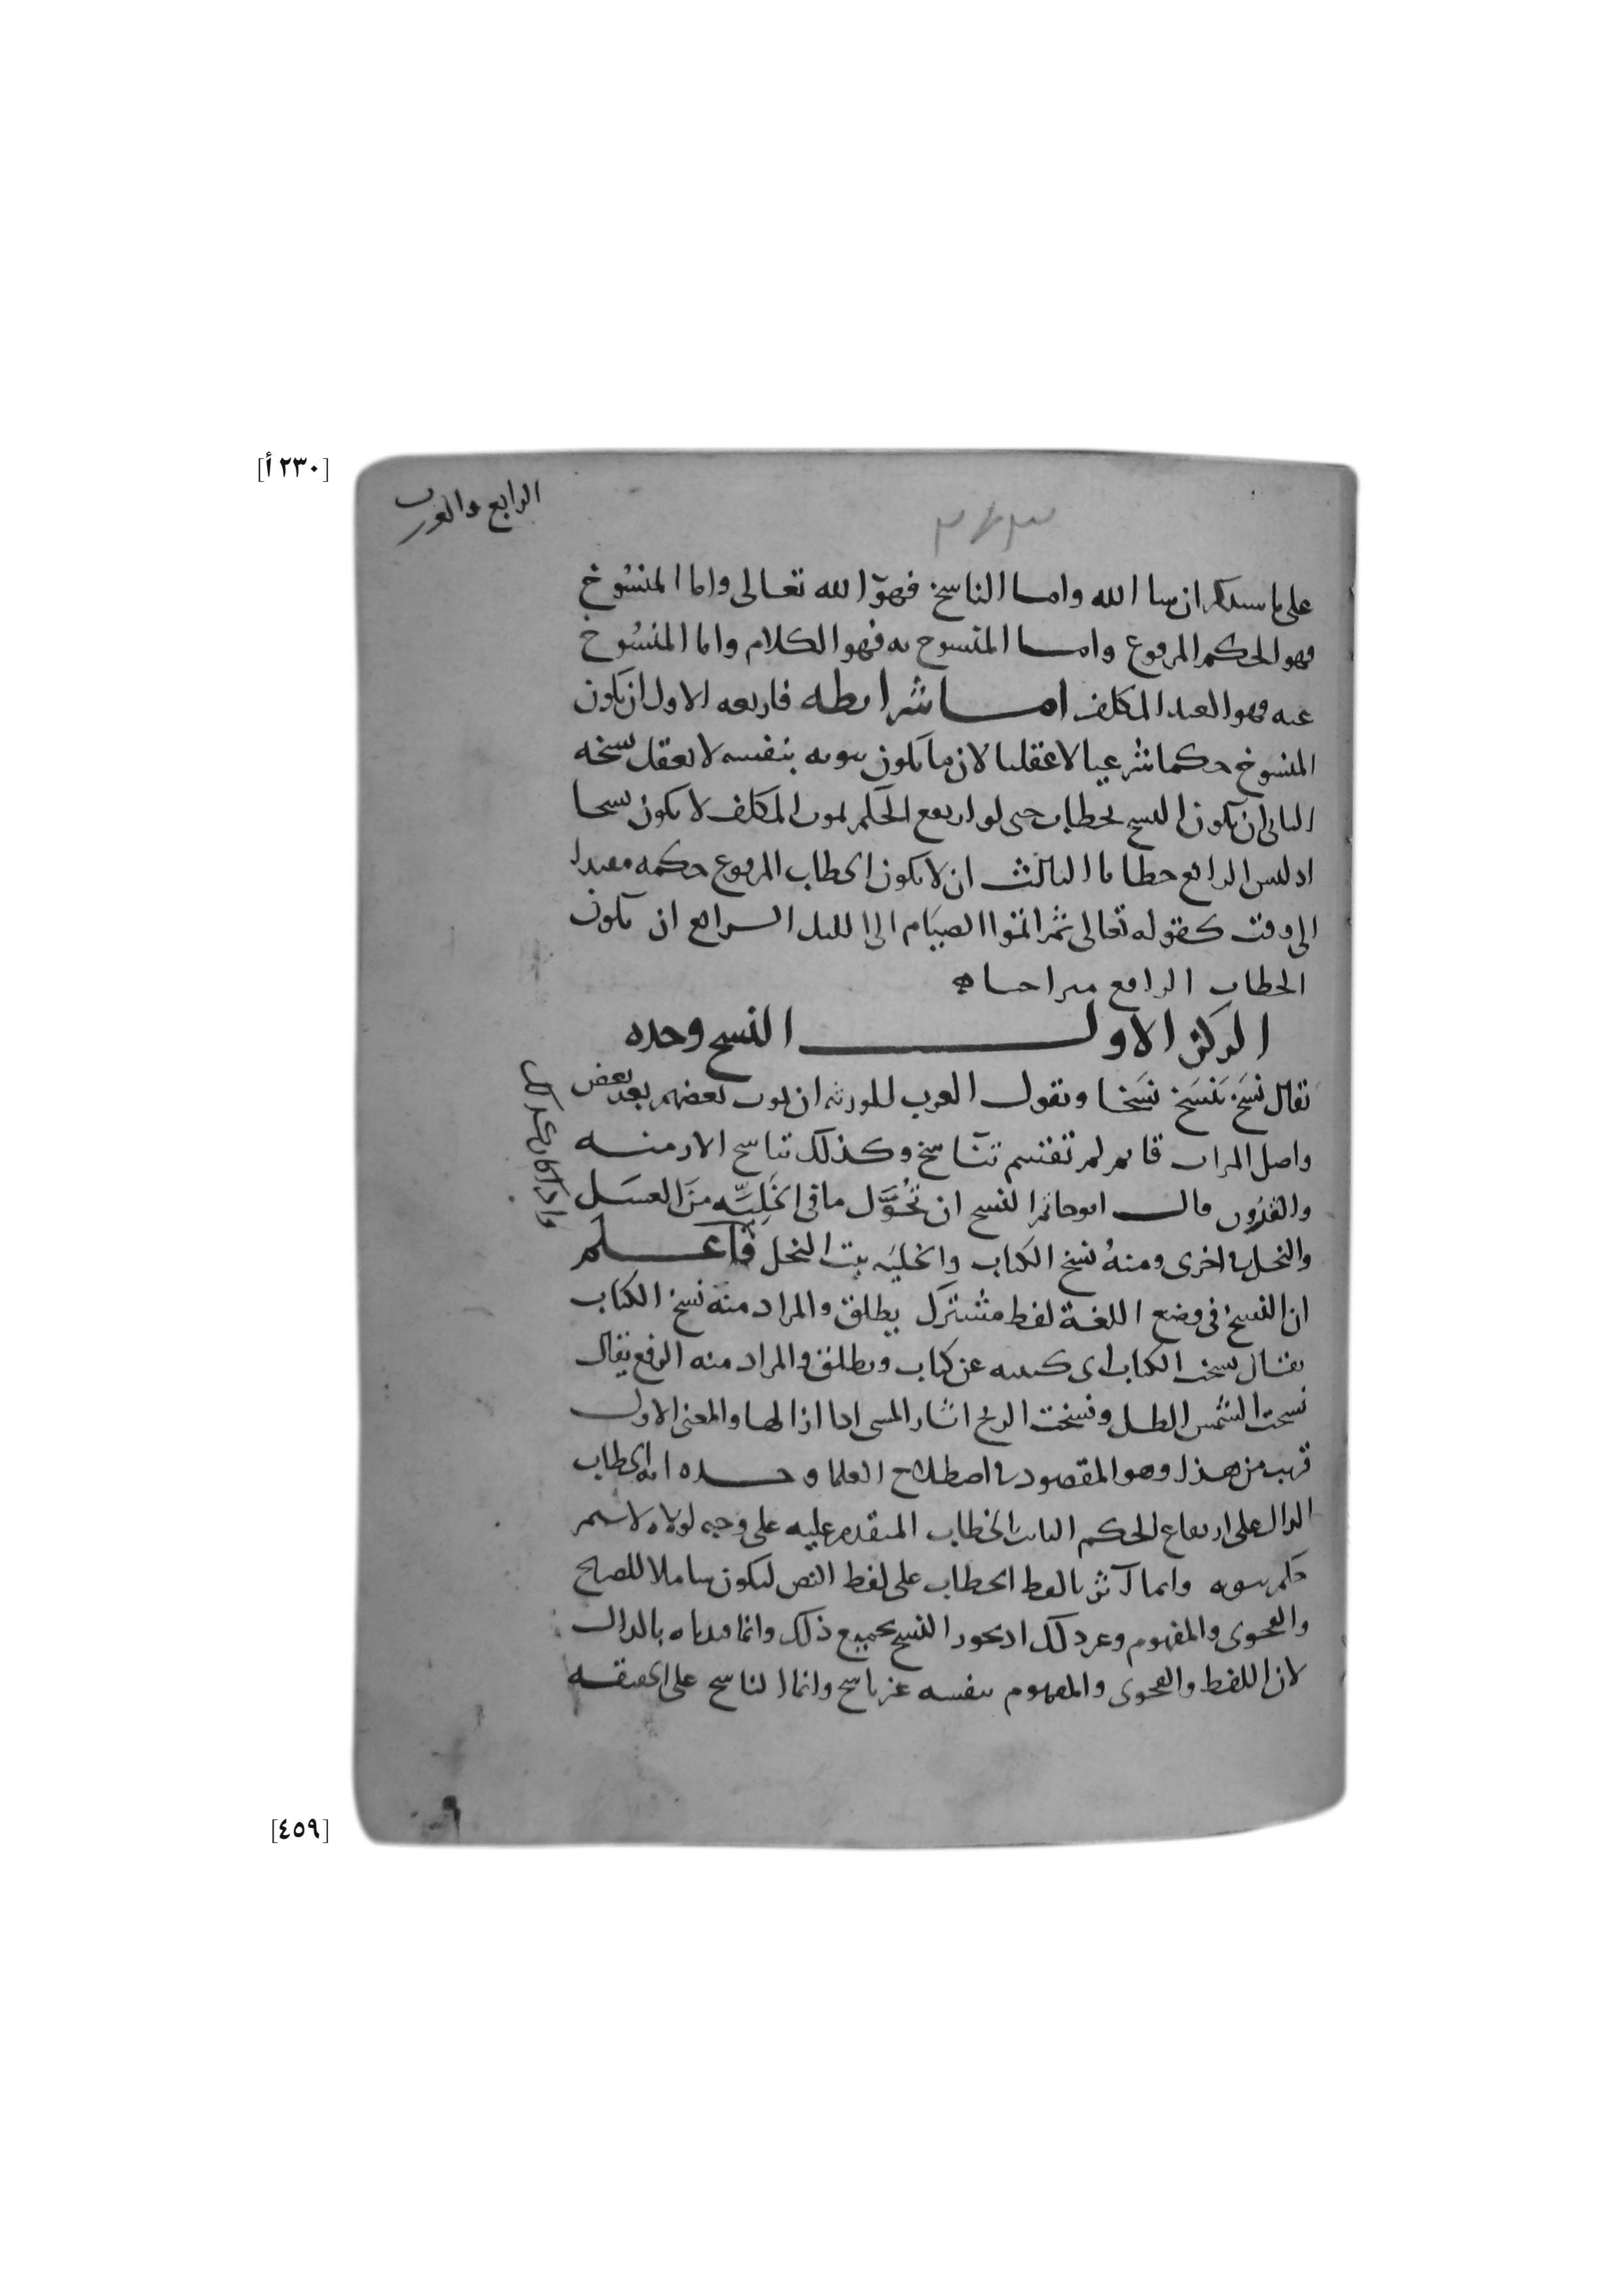 [٢٣٠ أ]
الرابع والعشرين
٣٤٣
على ما سنذكر ان شا الله واما الناسخ فهو الله تعالى واما المنسوخ
فهو الحكم المرفوع واما المنسوخ به فهو الكلام واما المنسوخ
عنه فهو العبد المكلف اما شرايطه فاربعه الاول ان يكون
المنسوخ حكما شرعيا لا عقليا لان ما يكون ثبوته بنفسه لا يعقل نسخه
الثاني ان يكون النسخ بخطاب حتى لو ارتفع الحكم بموت المكلف لا يكون نسخا
اذ ليس الرافع خطابا الثالث ان لا يكون الخطاب المرفوع حكمه مقيدا
الى وقت كقوله تعالى ثم اتموا الصيام الى الليل الرابع ان يكون
الخطاب الرافع متراخيا
الركن الاول النسخ وحده
تقال نَسَخ يَنسَخ نَسَخا وتقول العرب للورثه ان يموت بعضهم بعد بعض
واصل الميراث قايم لم تقتسم تناسخ وكذلك تناسخ الازمنه
والقرون قال ابو حاتم النسخ ان تُحَوَّل ما في الخليّه من العسل
والنحل في اخرى ومنه نسخ الكتاب والخليه بيت النحل فاعلم
ان النسخ في وضع اللغة لفظ مشترك يطلق والمراد منه نسخ الكتاب
يقال نسخت الكتاب اى كتبته عن كتاب ويطلق والمراد منه الرفع يقال
نسخت الشمس الظل ونسخت الريح اثار المشى اذا ازالها والمعنى الاول
قريب من هذا وهو المقصود في اصطلاح العلما وحده انه الخطاب
الدال على ارتفاع الحكم الثابت بالخطاب المتقدم عليه على وجه لولاه لاستمر
حكم ثبوته وانما آثرنا لفظ الخطاب على لفظ النص ليكون شاملا للصلح
والفحوى والمفهوم وغير ذلك اذ يجوز النسخ بجميع ذلك وانما قيدناه بالدال
لان اللفظ والفحوى والمفهوم بنفسه غير ناسخ وانما الناسخ على الحقيقه
[٤٥٩]